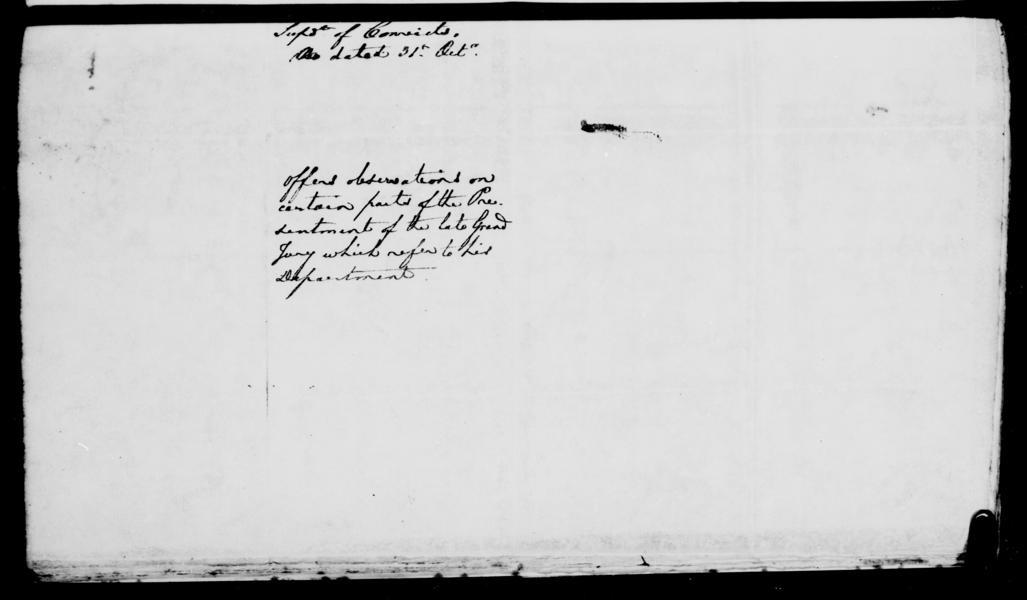 Supdt of Convicts.
No dated 31st Octr.
offers observations on
certain parts of the Pre-
sentment of the late Grand
Jury which refer to his
Department.